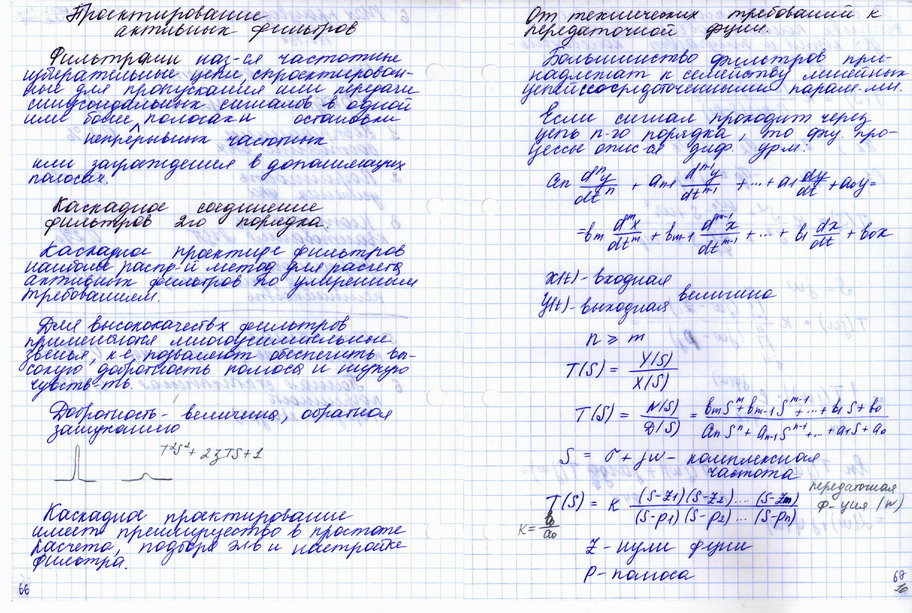 Проектирование
активных фильтров
Фильтрами наз-ся частотно
избирательные цепи, спроектирован-
ные для пропускания или передачи
синусоидальных сигналов в одной
или более полосах остановки
непрерывных частотных
или заграждения в дополняющих
полосах.
Каскадное соединение
фильтров 2го порядка.
Каскадное проект-ие фильтров
наиболее распр-й метод для расчета
активных фильтров по умеренным
требованиям.
Для высококачеств фильтров
применяются многоусилительные
звенья, к-е, позволяют обеспечить вы-
сокую добротность полюса и низкую
чувств-ть.
Добротность - величина, обратная
затуханию
T²S²+2ξTS+1
Каскадное проектирование
имеет преимущество в простоте
расчета, подбора эл-в и настройке
фильтра.
66
От технических требований к
передаточной фции.
Большинство фильтров при-
надлежат к семейству линейных
цепей с сосредоточенными парам-ми.
Если сигнал проходит через
цепь n-го порядка, то физ про-
цессы опис-ся диф. урм:
an dⁿy/dtⁿ + an-1 dⁿ⁻¹y/dtⁿ⁻¹ + ... + a1 dy/dt + a0y=
=bm dᵐx/dtᵐ + bm-1 dᵐ⁻¹x/dtᵐ⁻¹ + ... + b1 dx/dt + b0x
x(t) - входная
y(t) - выходная величина
n ⩾ m
T(S) = Y(S)/X(S)
T(S) = N(S)/D(S) = bmSᵐ+bm-1Sᵐ⁻¹+...+b1S+b0/anSⁿ+an-1Sⁿ⁻¹+...+a1S+a0
S = σ + jω - комплексная
частота
T(S) = K (S-z1)(S-z2)...(S-zm)/(S-p1)(S-p2)...(S-pn) передаточная
ф-ция (w)
K = b0/a0
Z - нули фции
P - полюса
67